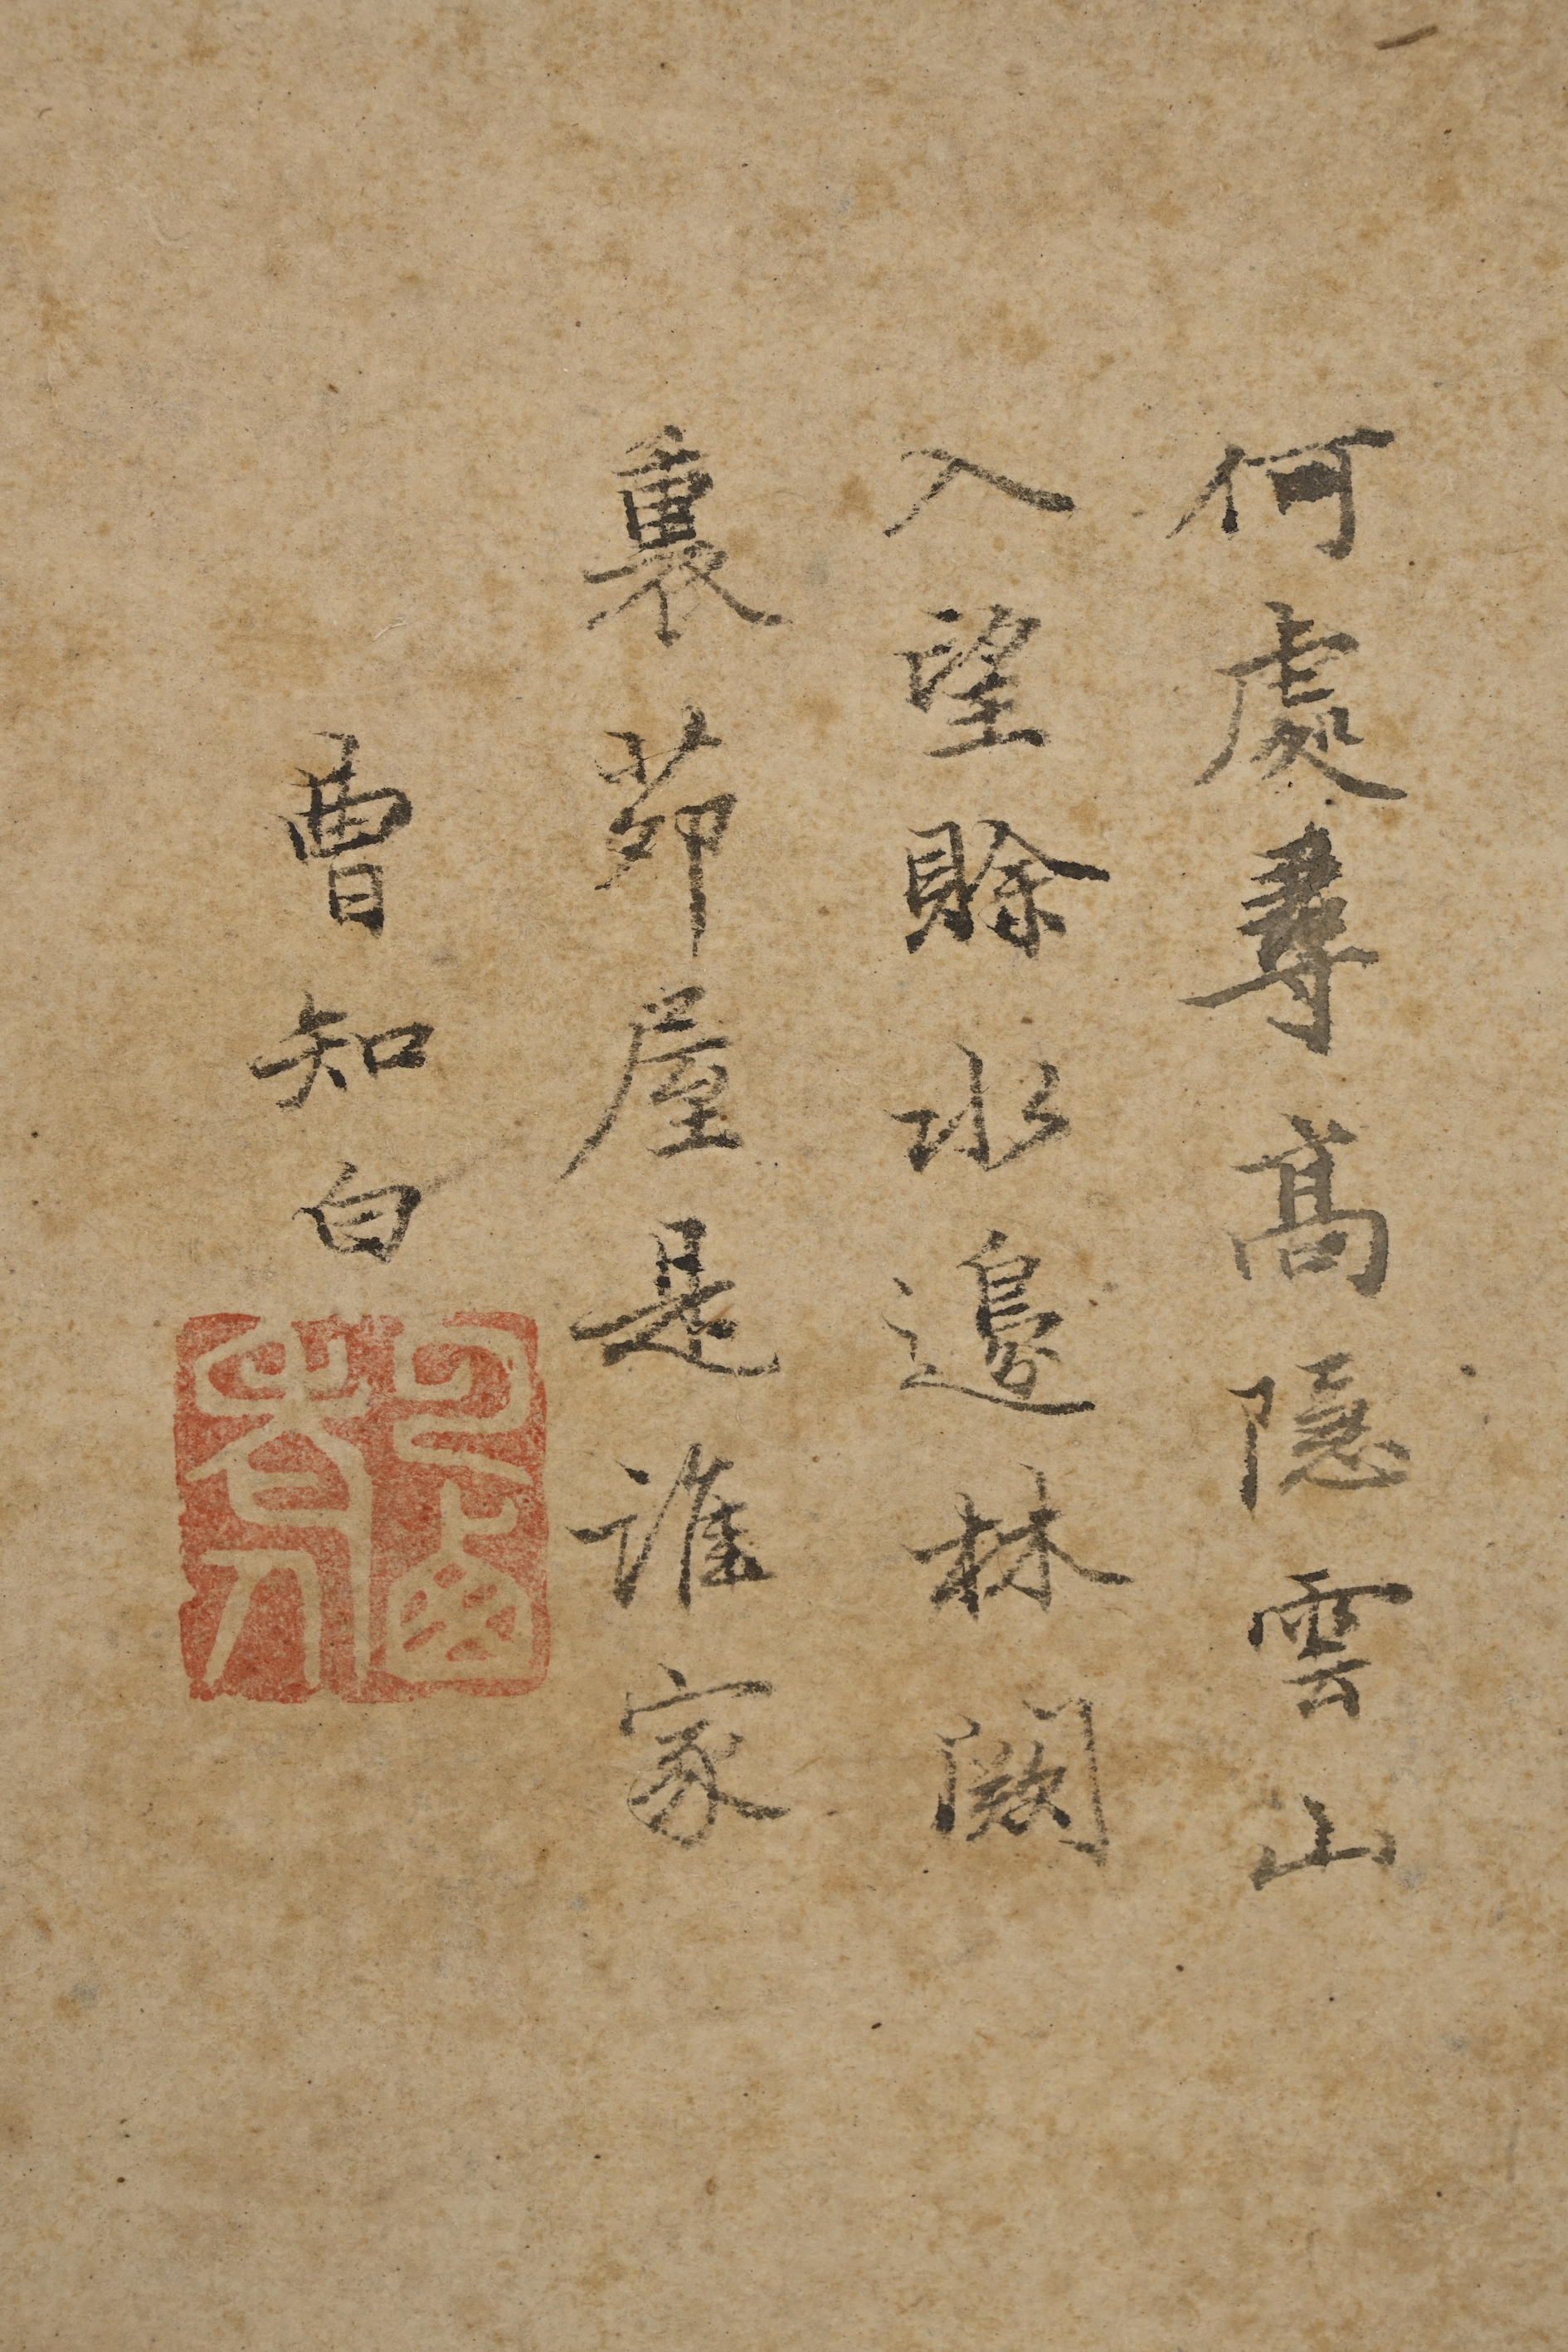 何處尋高隱雲山
入望賒水邊林闕
裏茆屋是誰家
曹知白